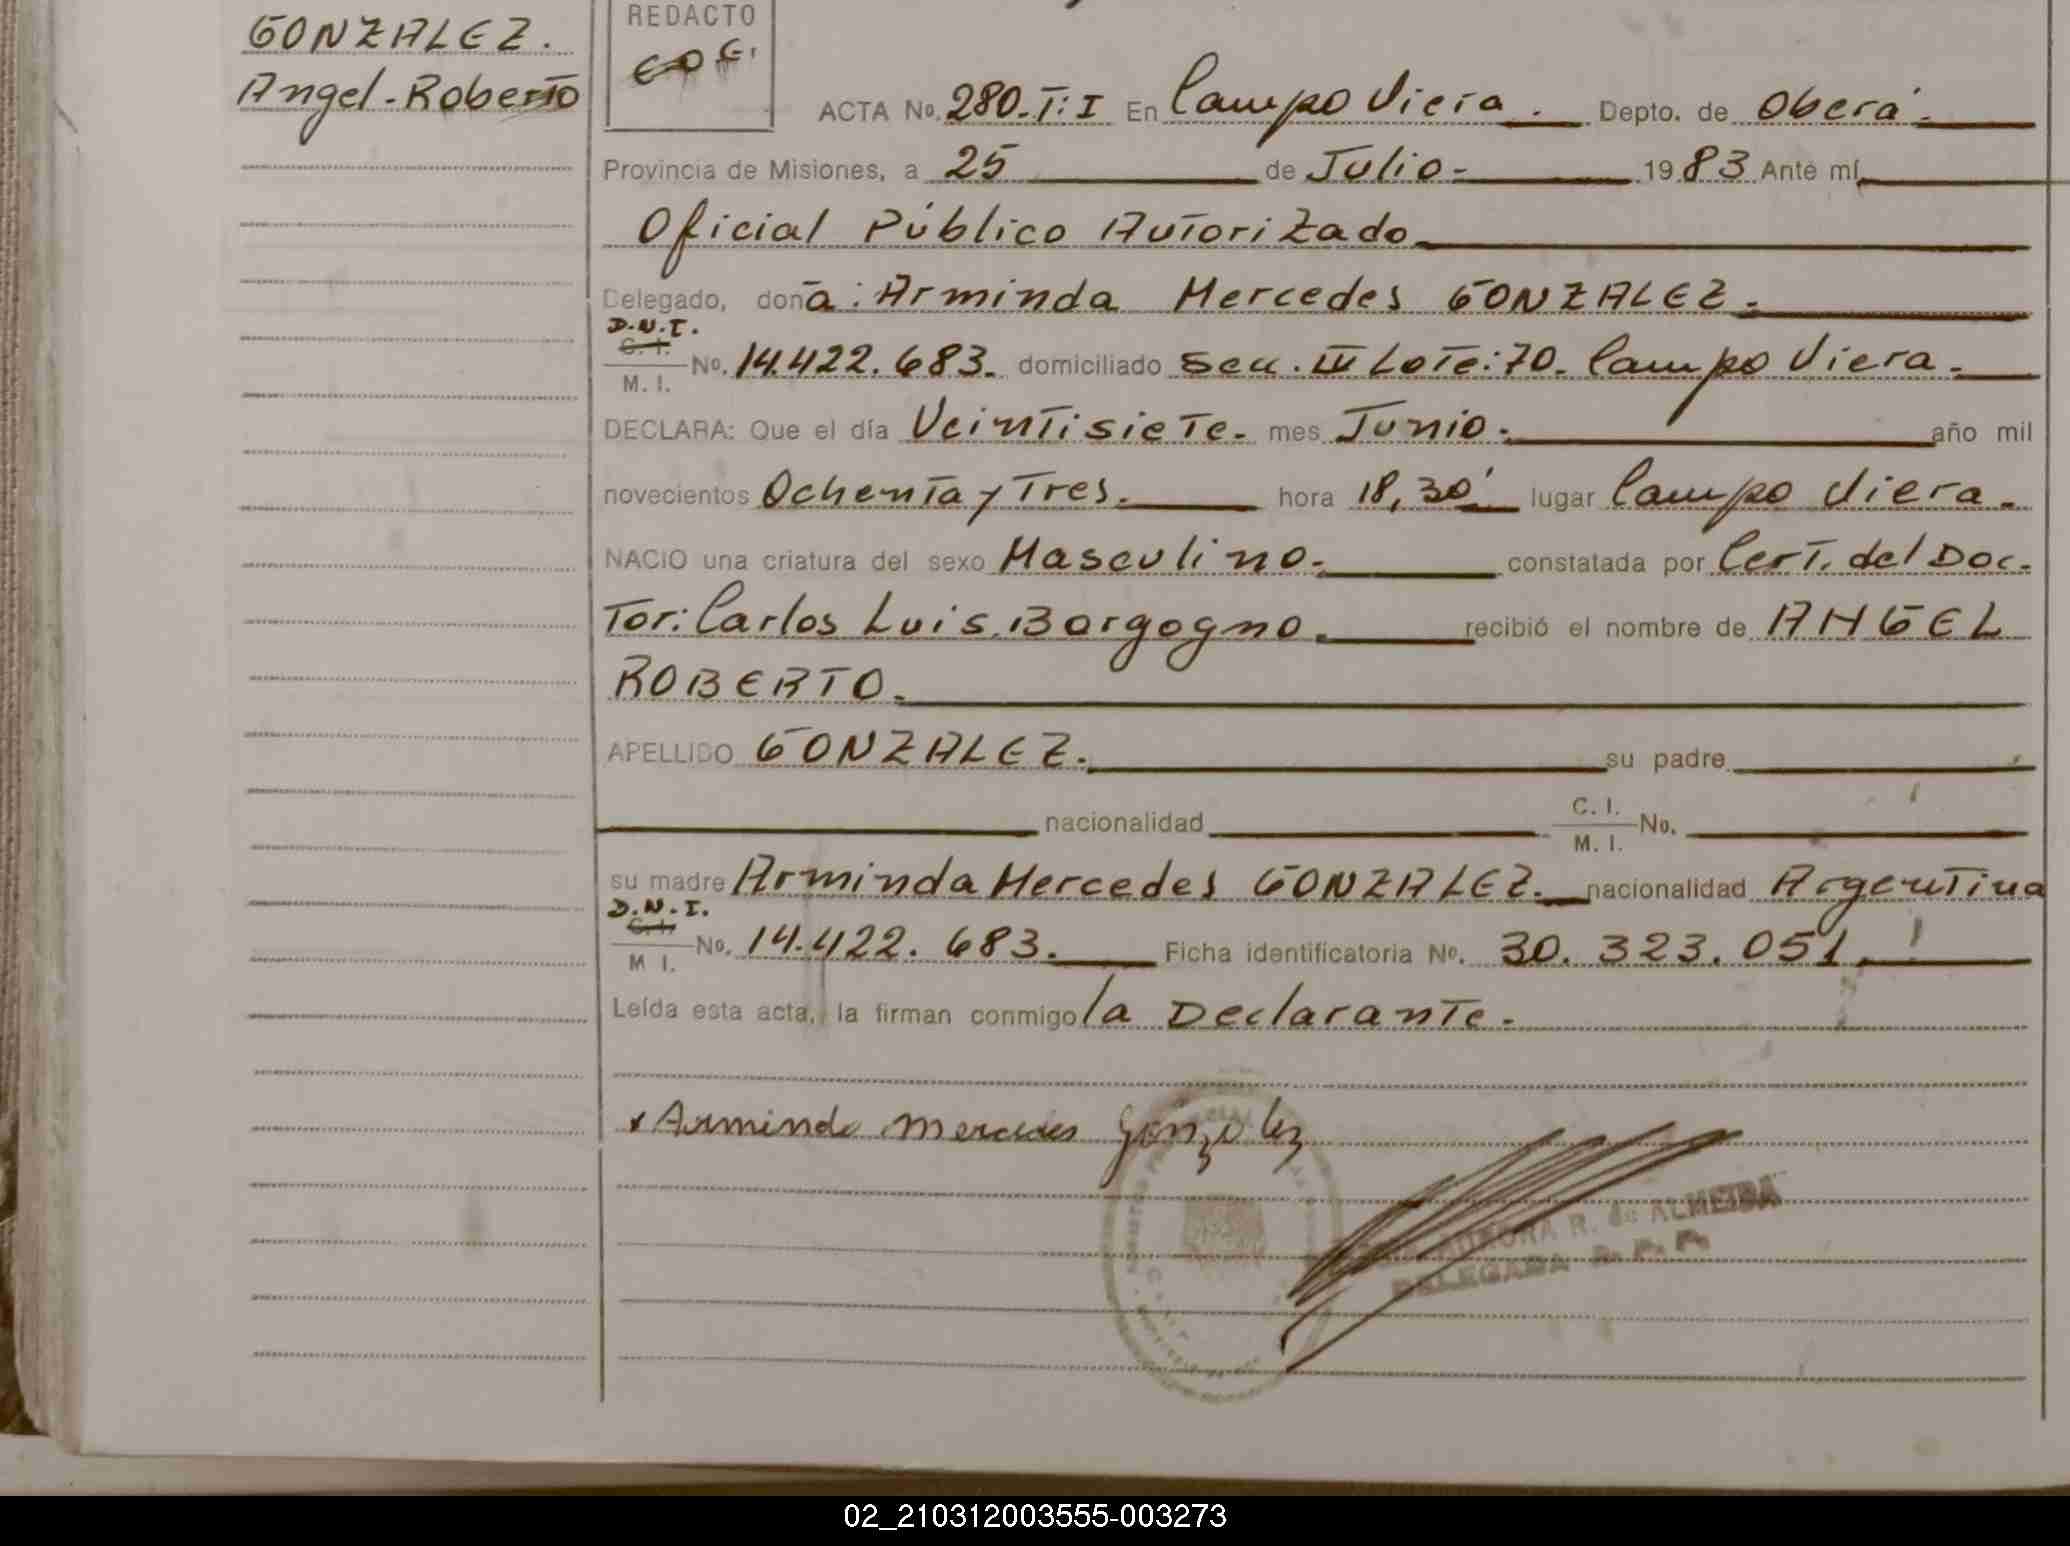 GONZALEZ.
Angel-Roberto
REDACTO
ACTA No. 280-T:I En Campo Viera. Depto. de Oberá.
Provincia de Misiones, a 25 de Julio- 1983 Ante mí,
Oficial Público Autorizado
Delegado, doña: Arminda Mercedes GONZALEZ.
D.N.I.
C. I.
M. I.
No. 14.422.683. domiciliado Secc. IV Lote: 70. Campo Viera.
DECLARA: Que el día Veintisiete. mes Junio. año mil
novecientos Ochenta y Tres. hora 18,30' lugar Campo Viera.
NACIO una criatura del sexo Masculino. constatada por Cert. del Doc.
Tor: Carlos Luis Borgogno. recibió el nombre de ANGEL
ROBERTO.
APELLIDO GONZALEZ. su padre
nacionalidad C. I. No.
M. I.
su madre Arminda Mercedes GONZALEZ. nacionalidad Argentina
D.N.I.
C. I.
M I.
No. 14.422.683. Ficha identificatoria No. 30.323.051.
Leída esta acta, la firman conmigo la Declarante.
x Arminda Mercedes González
AURORA R. de ALMEIDA
DELEGADA R. P. P.
02_210312003555-003273